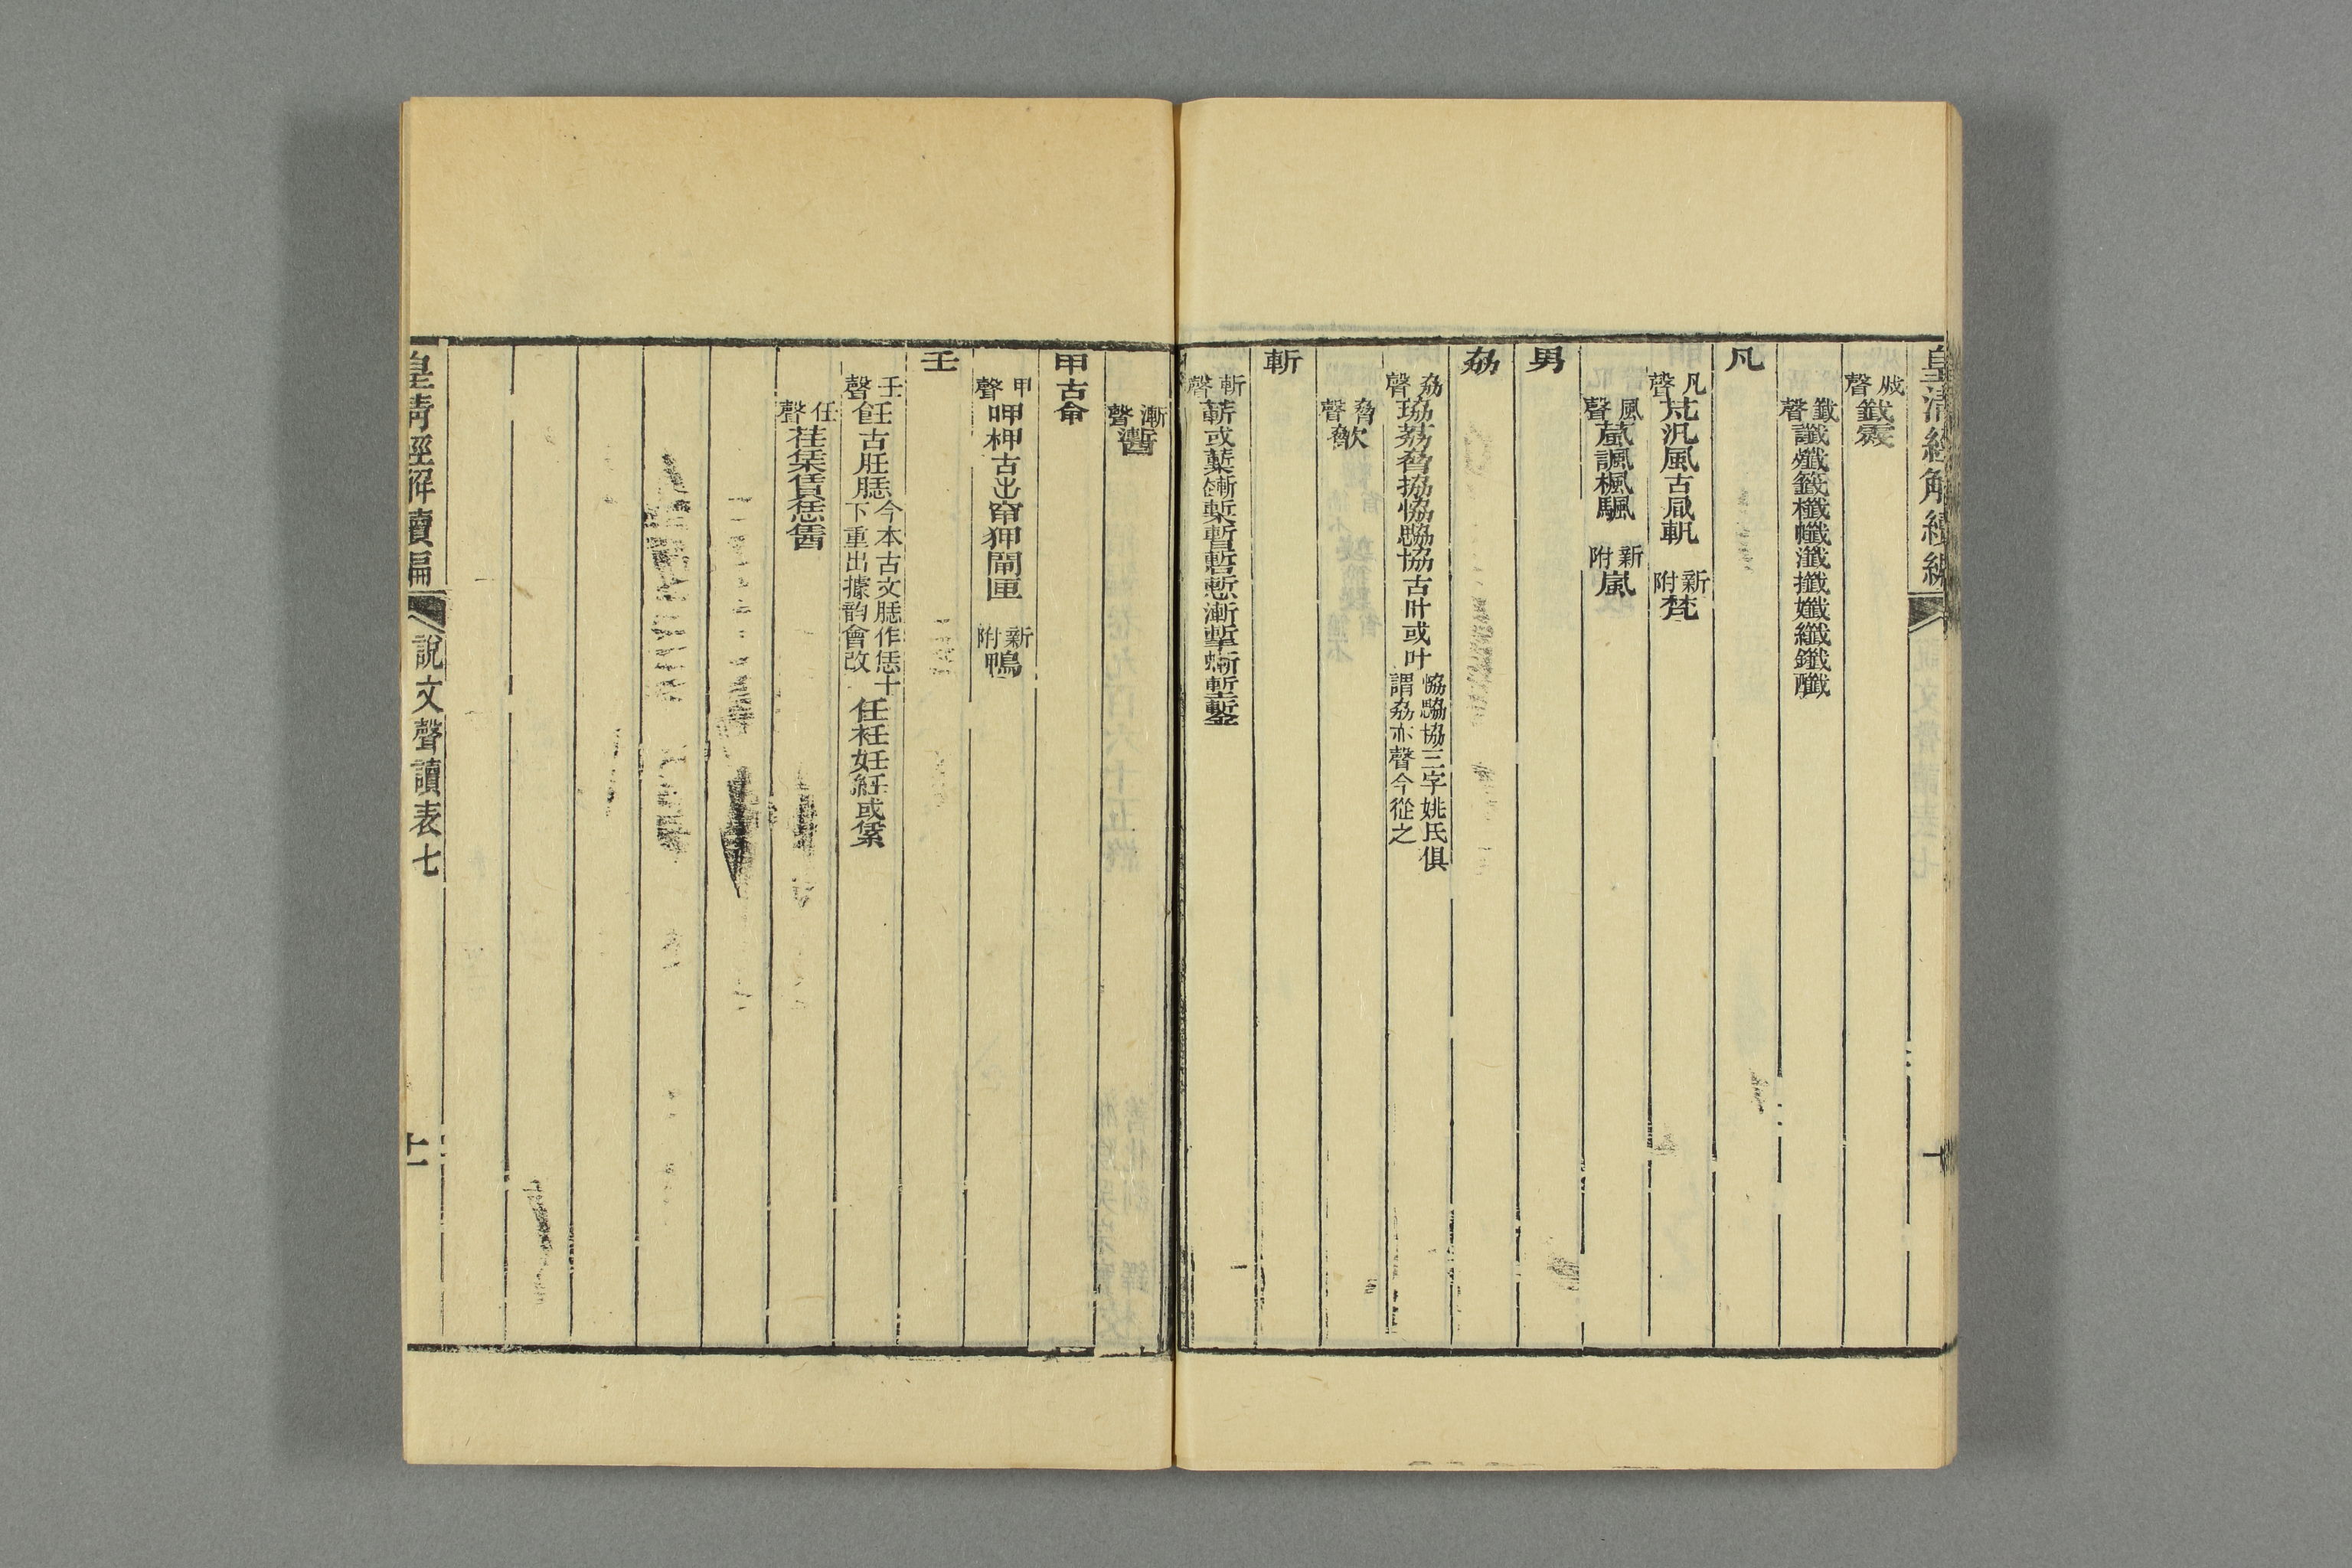 皇清經解續編 十
韱聲 䥫霰
韱聲 讖殲籤櫼幟瀸攕孅纖鑯醶
凡
凡聲 芃汎風古凬軓 新附 梵
風聲 葻諷楓颿 新附 嵐
男
劦
劦聲 珕荔脅拹恊勰協古叶或叶 恊勰協三字姚氏俱謂劦亦聲今從之
脅聲 歙
斬
斬聲 蔪或槧鏩槧暫暫慙漸摲蜥塹鏨
漸聲 蘄
甲古𠇚
甲聲 呷柙古𠙹窜狎閘匣 新附 鴨
壬
壬聲 飪古肚恁 今本古文恁作恁十下重出據韵會改 任衽妊紝或䋕
任聲 荏栠賃恁𨡭
皇清經解續編 說文聲讀表七 十一